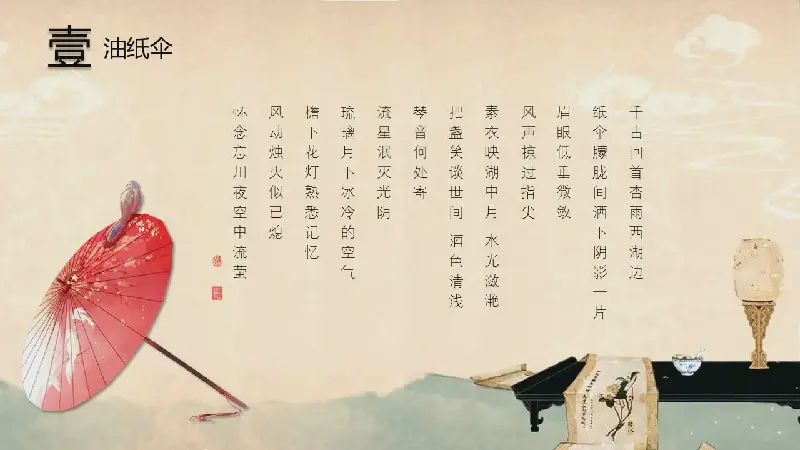 壹 油纸伞
千古回首杏雨西湖边
纸伞朦胧间洒下阴影一片
眉眼低垂微敛
风声掠过指尖
素衣映湖中月 水光潋滟
把盏笑谈世间 酒色清浅
琴音何处寄
流星泯灭光阴
琉璃月下冰冷的空气
檐下花灯熟悉记忆
风动烛火似已熄
怀念忘川夜空中流萤